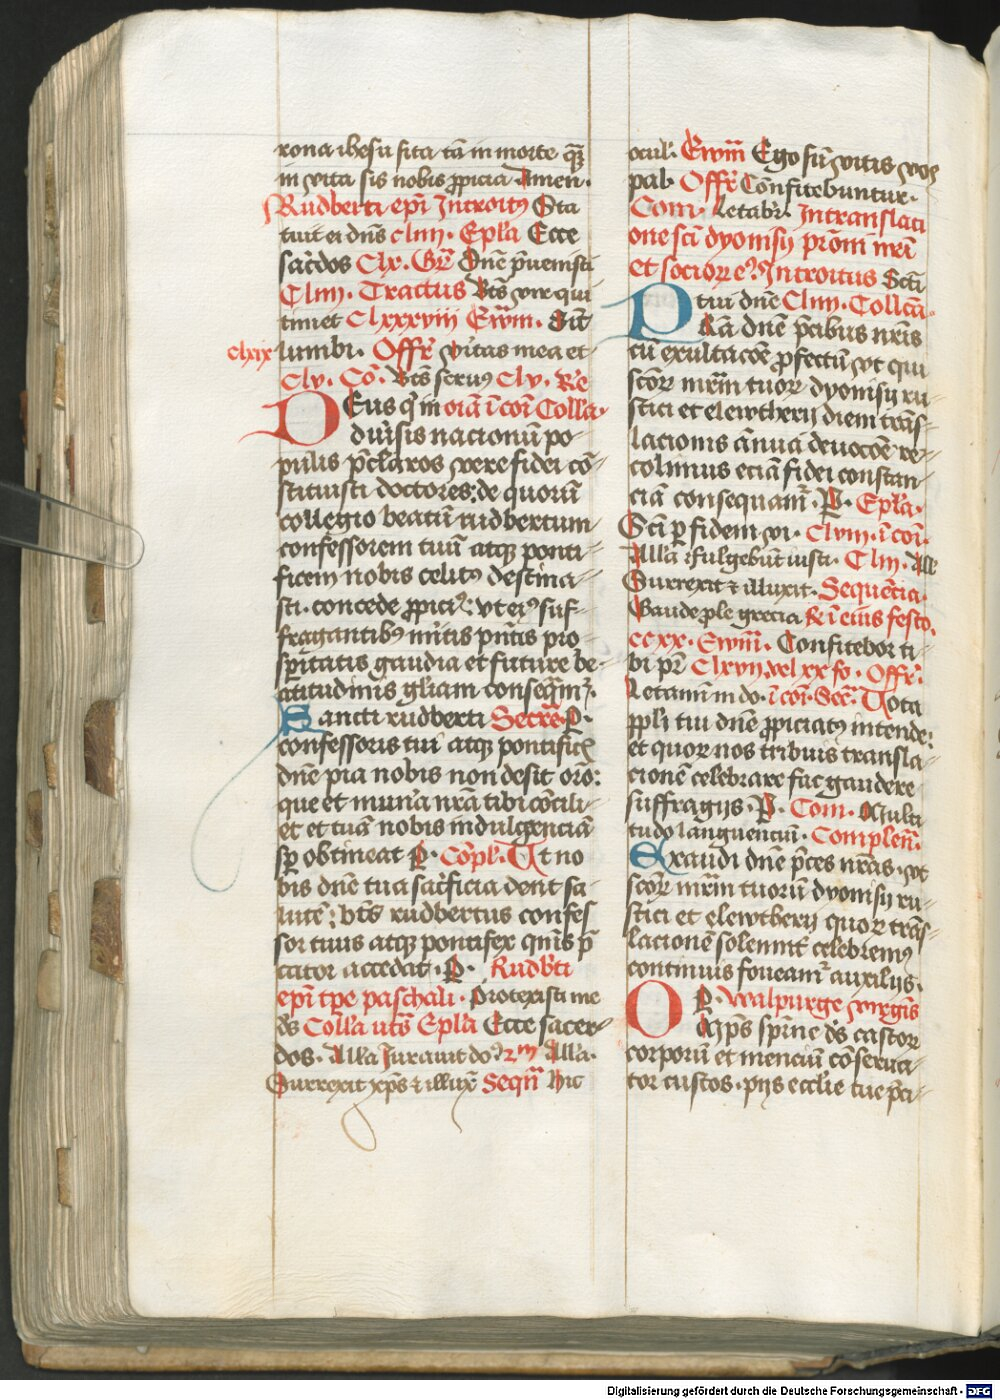 rona ihesu sita tā in morte q̄ȝ
in vita sis nobis ꝓpicia Amen·
Rudberti epī Introitꝰ Sta
tuit ei dn̄s clıııı· Epl'a Ecce
sac̄dos Clx· Gr̄ Dn̄e p̄uenisti
Clıııı· Tractus Bt̄s vir qui
timet Clxxxviij Ew̄m· Sīt
clxix lumbi· Offr̄ Veritas mea et
Clv· Cō· Bt̄s seruꝰ Clv· Re
DEus qͥ in oīa ī cōi Coll'a·
diu'sis nacionū po-
pulis p̄claros vere fidei cō-
stituisti doctores: de quorū
collegio beatū rudbertum
confessorem tuū atqꝫ ponti-
ficem nobis celitꝰ destina-
sti· concede ꝓpiciꝰ: vt eiꝰ suf-
fragantibꝰ mītis pn̄tis pro-
spitatis gaudia et future be-
atitudinis gl'iam conseq̄m̄ᷣ·
Sancti rudberti Secre·P·
confessoris tui atqꝫ pontificꝭ
dn̄e pia nobis non desit orō:
que et mun'a nr̄a tibi cōcili-
et et tuā nobis indulgenciā
sꝑ obtineat P· Cōpl'· Ut no
bis dn̄e tua sac̄ficia dent sa-
lutē: bt̄s rudbertus confes
sor tuus atqꝫ pontifex qm̄s p̄
cator accedat·P· Rudb'ti
epī tp̄e paschali· Protexisti me
ds̄ Coll'a utˢ Epl'a Ecce sacer-
dos· All'a Iurauit do· 2m All'a·
Surrexit xp̄s ⁊ illux̄ Seqn̄ Hic
ocul'· Ew̄m Ego sū vitis vos
pal'· Offr̄ Cōnfitebuntur·
Com· Letabr· In translaci
one sc̄i dyonisij pr̄oni nr̄i
et socioꝝ eꝰ Introitus Sc̄ti
tui dn̄e Clııı· Collc̄a·
PLācā dn̄e p̄cibus nr̄is
cū exultacōe ꝓfectū vt qui
sc̄oꝝ mr̄m tuoꝝ dyonisij ru-
stici et elewtherij diem trās-
lacionis ānua deuocōe re-
colimus eciā fidei constan-
ciā consequam̄ᷣ·P· Epl'a·
Sc̄ti ꝑ fidem vi· Clvııı· ī cōi·
All'a Fulgebūt iusti· Clııı· All'
Surrexit ⁊ illuxit· Sequēcia·
Gaude ꝓle grecia re ī eius festo·
ccxx· Ewm̄· Confitebor ti-
bi pr̄ Clxvıı vel xx fo· Offr̄·
Letamī in do· ī cōi· Sec̄· Uota
ppl'i tui dn̄e ꝓpiciatꝰ intende:
et quoꝝ nos tribuis transla-
cionē celebrare fac gaudere
suffragijs·P· Com· Multi
tudo languenciū· Complen̄·
Exaudi dn̄e p̄ces nr̄as· vt
sc̄oꝝ mr̄m tuorū dyonisij ru-
stici et elewtherij quoꝝ trās-
lacionē solennit' celebremꝰ
continuis foueam̄ᷣ auxilijs·
P· Walpurge v'rgīs
Omps sp̄rne ds̄ castor
corporū et menciū cōserua-
tor custos· pijs eccl'ie tue p̄ci-
Digitalisierung gefördert durch die Deutsche Forschungsgemeinschaft - DFG